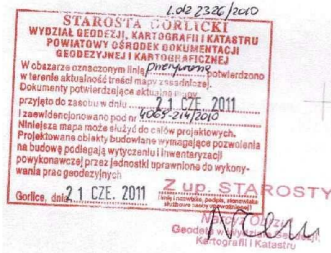 1.dz 2326/2010
STAROSTA GORLICKI
WYDZIAŁ GEODEZJI, KARTOGRAFII I KATASTRU
POWIATOWY OŚRODEK DOKUMENTACJI
GEODEZYJNEJ I KARTOGRAFICZNEJ
W obszarze oznaczonym linią przerywaną potwierdzono
w terenie aktualność treści mapy zasadniczej.
Dokumenty potwierdzające aktualność mapy
przyjęto do zasobu w dniu 21 CZE. 2011
i zaewidencjonowano pod nr 4069-214/2010
Niniejsza mapa może służyć do celów projektowych.
Projektowane obiekty budowlane wymagające pozwolenia
na budowę podlegają wytyczeniu i inwentaryzacji
powykonawczej przez jednostki uprawnione do wykony-
wania prac geodezyjnych
Gorlice, dnia 21 CZE. 2011
Z up. STAROSTY
(imię i nazwisko, podpis, stanowisko
Geodeta
Kartografii i Katastru